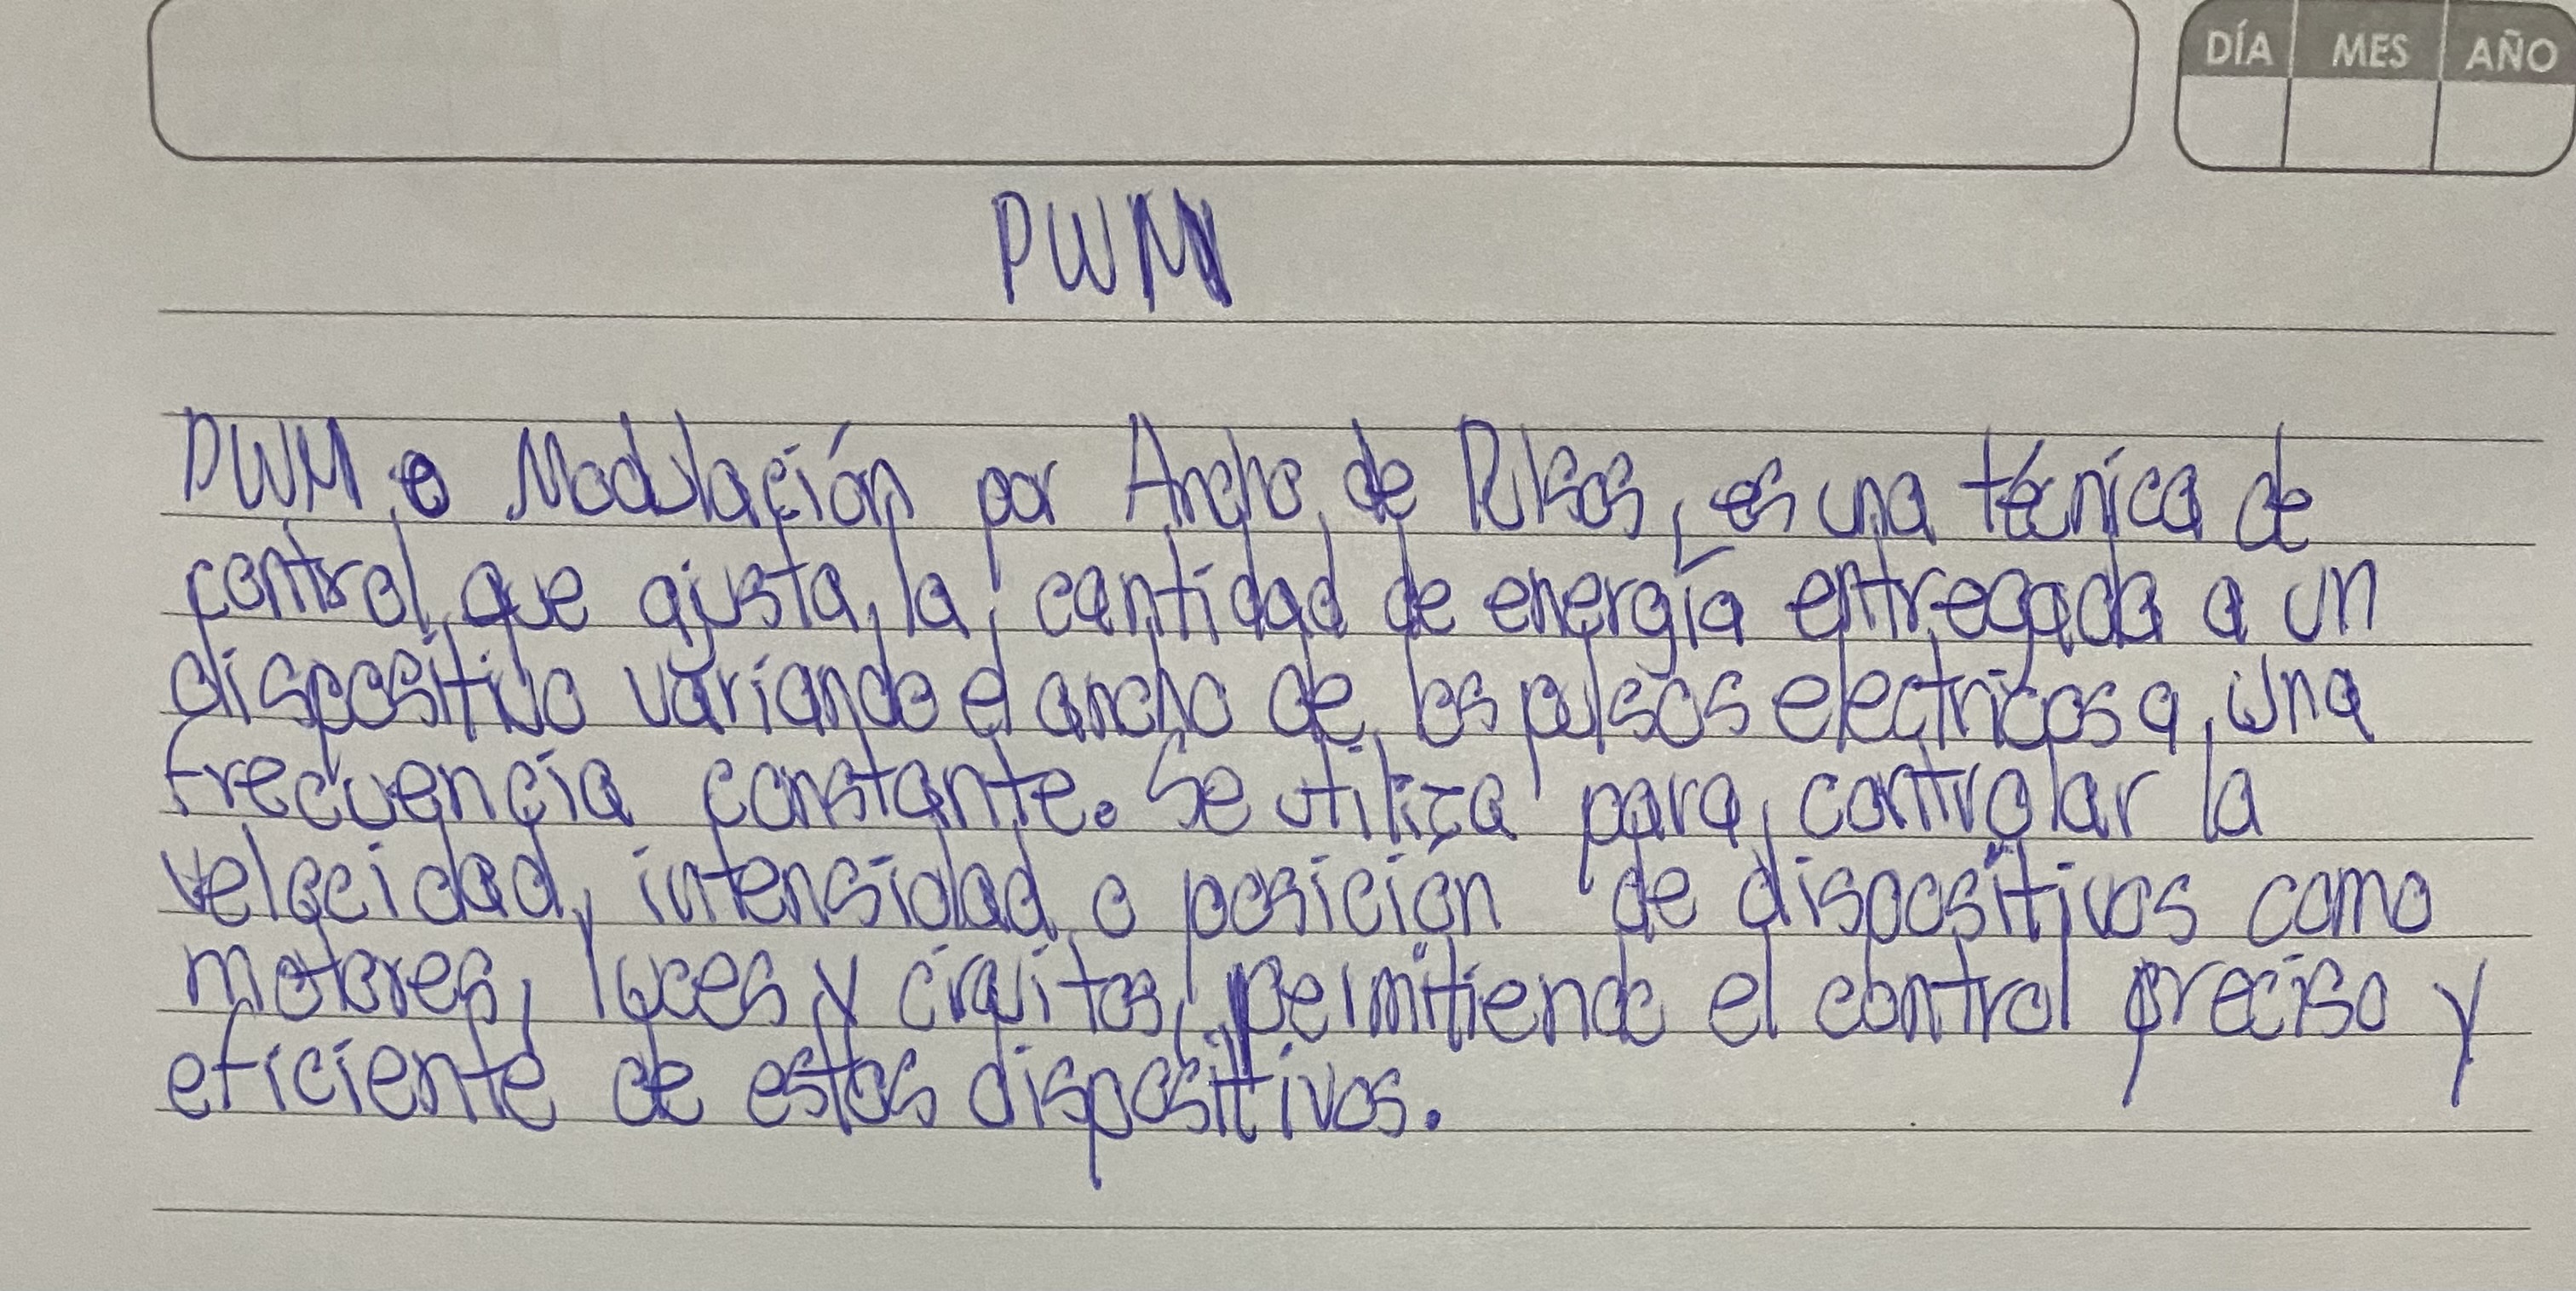 DÍA MES AÑO
PWM
PWM o Modulación por Ancho de Pulsos, es una ténica de
control que ajusta la cantidad de energía entregada a un
dispositivo variando el ancho de los pulsos electricos a una
frecuencia constante. Se utiliza para controlar la
velocidad, intensidad o posición de dispositivos como
motores, luces y cicuitos, permitiendo el control preciso y
eficiente de estos dispositivos.